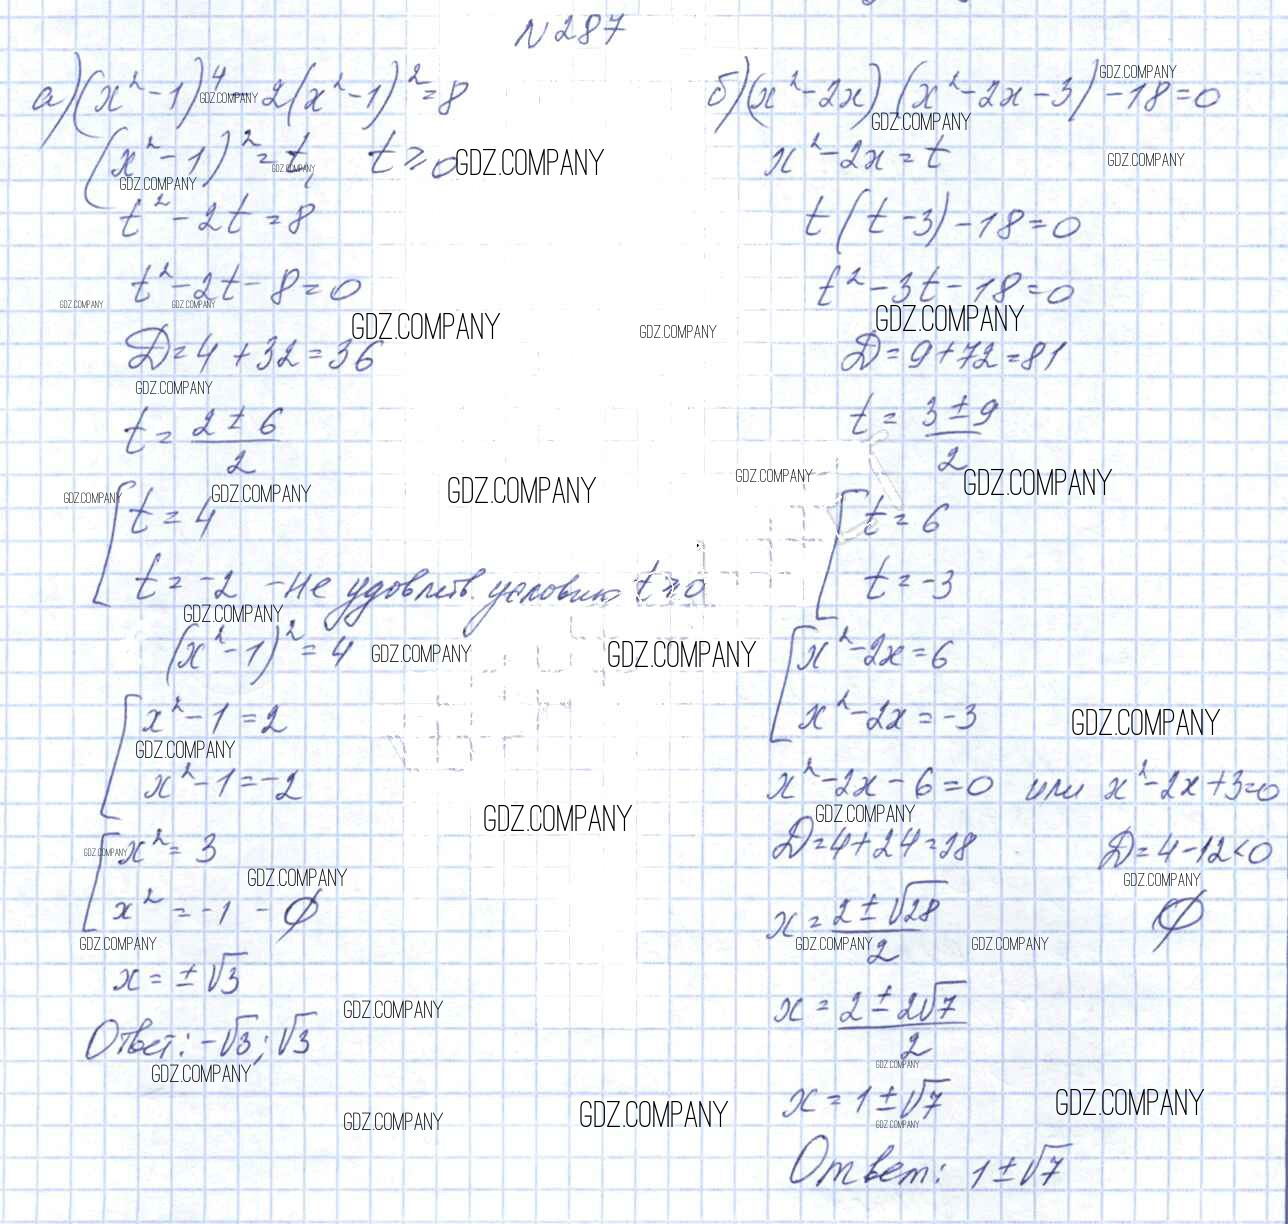 N 287
а) (x² - 1)⁴ - 2(x² - 1)² = 8
(x² - 1)² = t, t ≥ 0
t² - 2t = 8
t² - 2t - 8 = 0
D = 4 + 32 = 36
t = (2 ± 6)/2
[ t = 4
t = -2 - не удовлетв. условию t ≥ 0
(x² - 1)² = 4
[ x² - 1 = 2
x² - 1 = -2
[ x² = 3
x² = -1 - ∅
x = ± √3
Ответ: -√3; √3
б) (x² - 2x) (x² - 2x - 3) - 18 = 0
x² - 2x = t
t (t - 3) - 18 = 0
t² - 3t - 18 = 0
D = 9 + 72 = 81
t = (3 ± 9)/2
[ t = 6
t = -3
[ x² - 2x = 6
x² - 2x = -3
x² - 2x - 6 = 0 или x² - 2x + 3 = 0
D = 4 + 24 = 28 D = 4 - 12 < 0
x = (2 ± √28)/2 ∅
x = (2 ± 2√7)/2
x = 1 ± √7
Ответ: 1 ± √7
GDZ.COMPANY